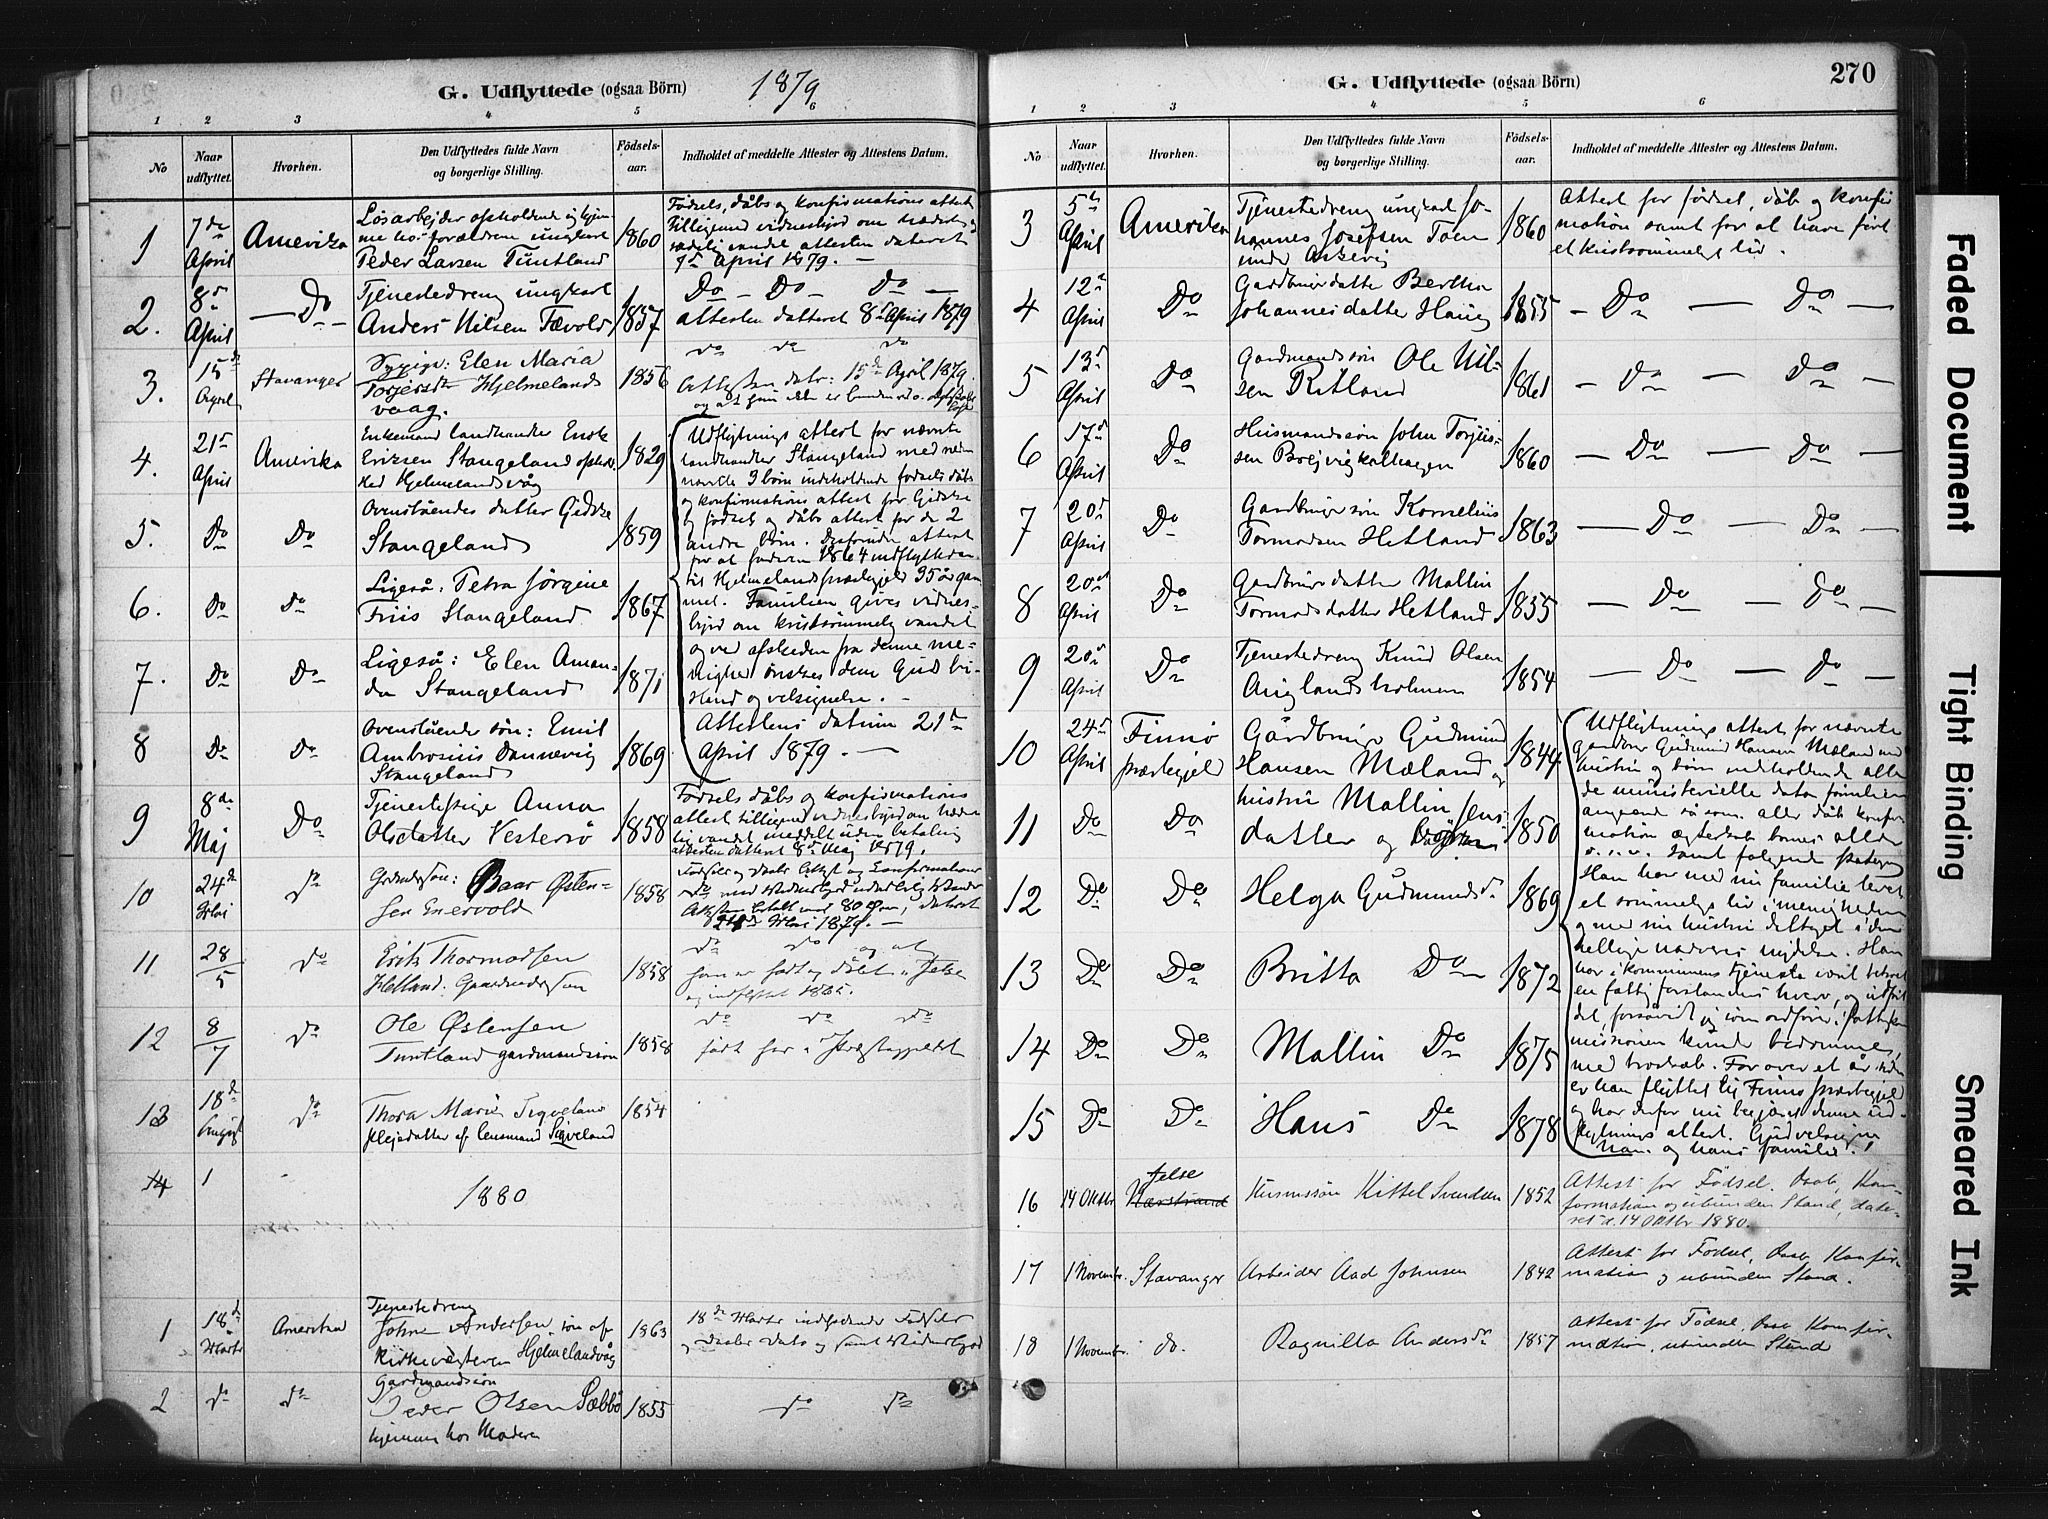 G. Udflyttede (ogsaa Börn) 1879
1 2 3 4 5 6
No
Naar udflyttet.
Hvorhen.
Den Udflyttedes fulde Navn og borgerlige Stilling.
Födsels-aar.
Indholdet af meddelte Attester og Attestens Datum.
1 7de April Amerika
Løsarbejder opholdende sig hjem-
me hos forældrene ungkarl
Peder Larsen Tuntland
1860
Fødsels, dåbs og konfirmations attest
tilligemed vidnesbyrd om
vandel attesten dateret
7de April 1879. —
2. 8de April — Do —
Tjenestedreng ungkarl
Anders Nilsen Fævold
1857
Do — Do — Do —
attesten datteret 8de April 1879
3. 15de April Stavanger
Elen Maria
Torjersdtr Hjelmelands
vaag.
1856
do do do
Attesten datr: 15de April 1879.
4. 21de April Amerika
Enkemand landhandler Enok
Eriksen Stangeland
ved Hjelmelandsvåg
1829
Udflytnings attest for nævnte
landhandler Stangeland med neden
nævnte børn indeholdende fødsels dåbs
og konfirmations attest for Gidske
og fødsels og dåbs attest for de 2
andre børn. Desforuden attest
for at faderen 1864 indflyttede
til Hjelmelands præstegjeld 35 år gam
mel. Familien gives vidnes-
byrd om kristsømmelig vandel
og ved afskeden fra denne me-
nighed ønskes dem Gud bi-
stand og velsignelse. —
Attestens datum 21de
April 1879. —
5. Do Do
Ovenståendes datter Gidske
Stangeland
1859
6. Do Do
Ligeså: Petra Jørgine
Friis Stangeland
1867
7. Do Do
Ligeså: Elen Aman-
da Stangeland
1871
8 Do Do
Ovenstående søn: Emil
Ambrosius Dannevig
Stangeland
1869
9 8de Maj Do
Tjenestepige Anna
Olsdatter Vestersø
1858
Fødsels dåbs og konfirmations
attest tilligemed vidnesbyrd om
vandel meddelt uden betaling
attesten datteret 8de Maj 1879.
10 24de Mai do
Baar Østen-
sen Enervold
1858
Fødsels og Daabs Attest og Confirmations
do med Vidnesbyrd
Attesten betalt med 80 Øre, dateret
24de Mai 1879. —
11 28/5 do
Erik Thormodsen
Hetland.
1858
do do og at
han er født og døbt i Jelse
og indflyttet
12 8/7 do
Ole Østensen
Tuntland gardmandssøn
1858
do do do
født her i Præstegjeldet
13 18de August do
Thora Marie Sigveland
plejedatter af lensmand Sigveland
1854
14 1
1880
1 18de Marts Amerika
Tjenestedreng
John Andersen, søn af
Kirkeværgeren Hjelmelandvåg
1863
18de Marts indeholdende Fødsels
og Daabs Data og samt Vidnesbyrd
2 do do
Gardmandssøn
Peder Olsen Sæbbø
hjemme hos Moderen
1855
do do
G. Udflyttede (ogsaa Börn)
270
1 2 3 4 5 6
No
Naar udflyttet.
Hvorhen.
Den Udflyttedes fulde Navn og borgerlige Stilling.
Födsels-aar.
Indholdet af meddelte Attester og Attestens Datum.
3 5te April Amerika
Tjenestedreng ungkarl Jo-
hannes Josefsen Toen
under
1860
Attest for fødsel, dåb og konfir
mation samt for at have ført
et kristsømmeligt liv.
4 12te April Do
Gardbruger datter Bertha
Johannesdatter Haug
1855
— Do — Do —
5 13de April Do
Gardmandssøn Ole Nil-
sen Ritland
1861
— Do — Do —
6 17de April Do
Husmandssøn John Torjus-
sen
1860
— Do — Do —
7 20de April Do
Gardbruger søn Kornelius
Tormodsen Hetland
1863
— Do — Do —
8 20de April Do
Gardbruger datter Mallin
Tormods datter Hetland
1855
— Do — Do —
9 20de April Do
Tjenestedreng Knud Olsen
Auglandsholmen
1854
— Do — Do
10 24de April Finnø præstegjeld
Gårdbruger Gudmund
Hansen Mæland og
1844
Udflytnings attest for nævnte
Gardbr Gudmund Hansen Mæland med
hustru og børn indholdende alle
de ministerielle data familien
angående så som alder dåb konfir
mation ægteskab børnes alder
o.s.v. samt følgende påtegn
Han har med sin familie levet
et sømmeligt liv i menigheden
og med sin hustru deltaget i den
hellige nadveris nydelse. Han
har i kommunens tjeneste
en fattigforstanders hverv, og udført
det, forsåvidt jeg som ordfører i fattigkom
missionen kunde bedømme,
med troskab. For over et år siden
er han flyttet til Finnø præstegjeld
og har derfor nu begjæret denne ud-
flytnings attest. Gud velsigne
ham og hans familie!
11 Do Do
hustru Mallin Jens
datter og
1850
12 Do Do Helga Gudmundsd 1869
13 Do Do Britta Do 1872
14 Do Do Mallin Do 1875
15 Do Do Hans Do 1878
16 14 Oktbr Jelse Nærstrand
Husmssøn Kittel Svendsen 1852
Attest for Fødsel. Daab, Kon-
formation og ubunden Stand, date-
ret d. 14 Oktbr 1880.
17 1 Novembr. Stavanger Arbeider Aad Johnsen 1842
Attest for Fødsel, Daab Konfir-
mation og ubunden Stand.
18 1 Novembr. do. Ragnilla Andersdr 1857
Attest for Fødsel, Daab Konfir-
mation, ubunden Stand
Faded Document
Tight Binding
Smeared Ink